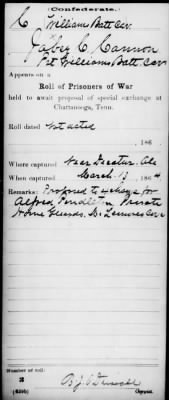 (Confederate.)
C Williams Batt Cav.
Jabez C. Cannon
Pvt Williams Batt Cav
Appears on a
Roll of Prisoners of War
held to await proposal of special exchange at
Chattanooga, Tenn.
Roll dated Not dated
, 186 .
Where captured Near Decatur, Ala
When captured March 17, 1864
Remarks: Proposed to exchange for
Alfred Pendleton Private
Home Guards,
Number of roll:
3
(639b)
Copyist.